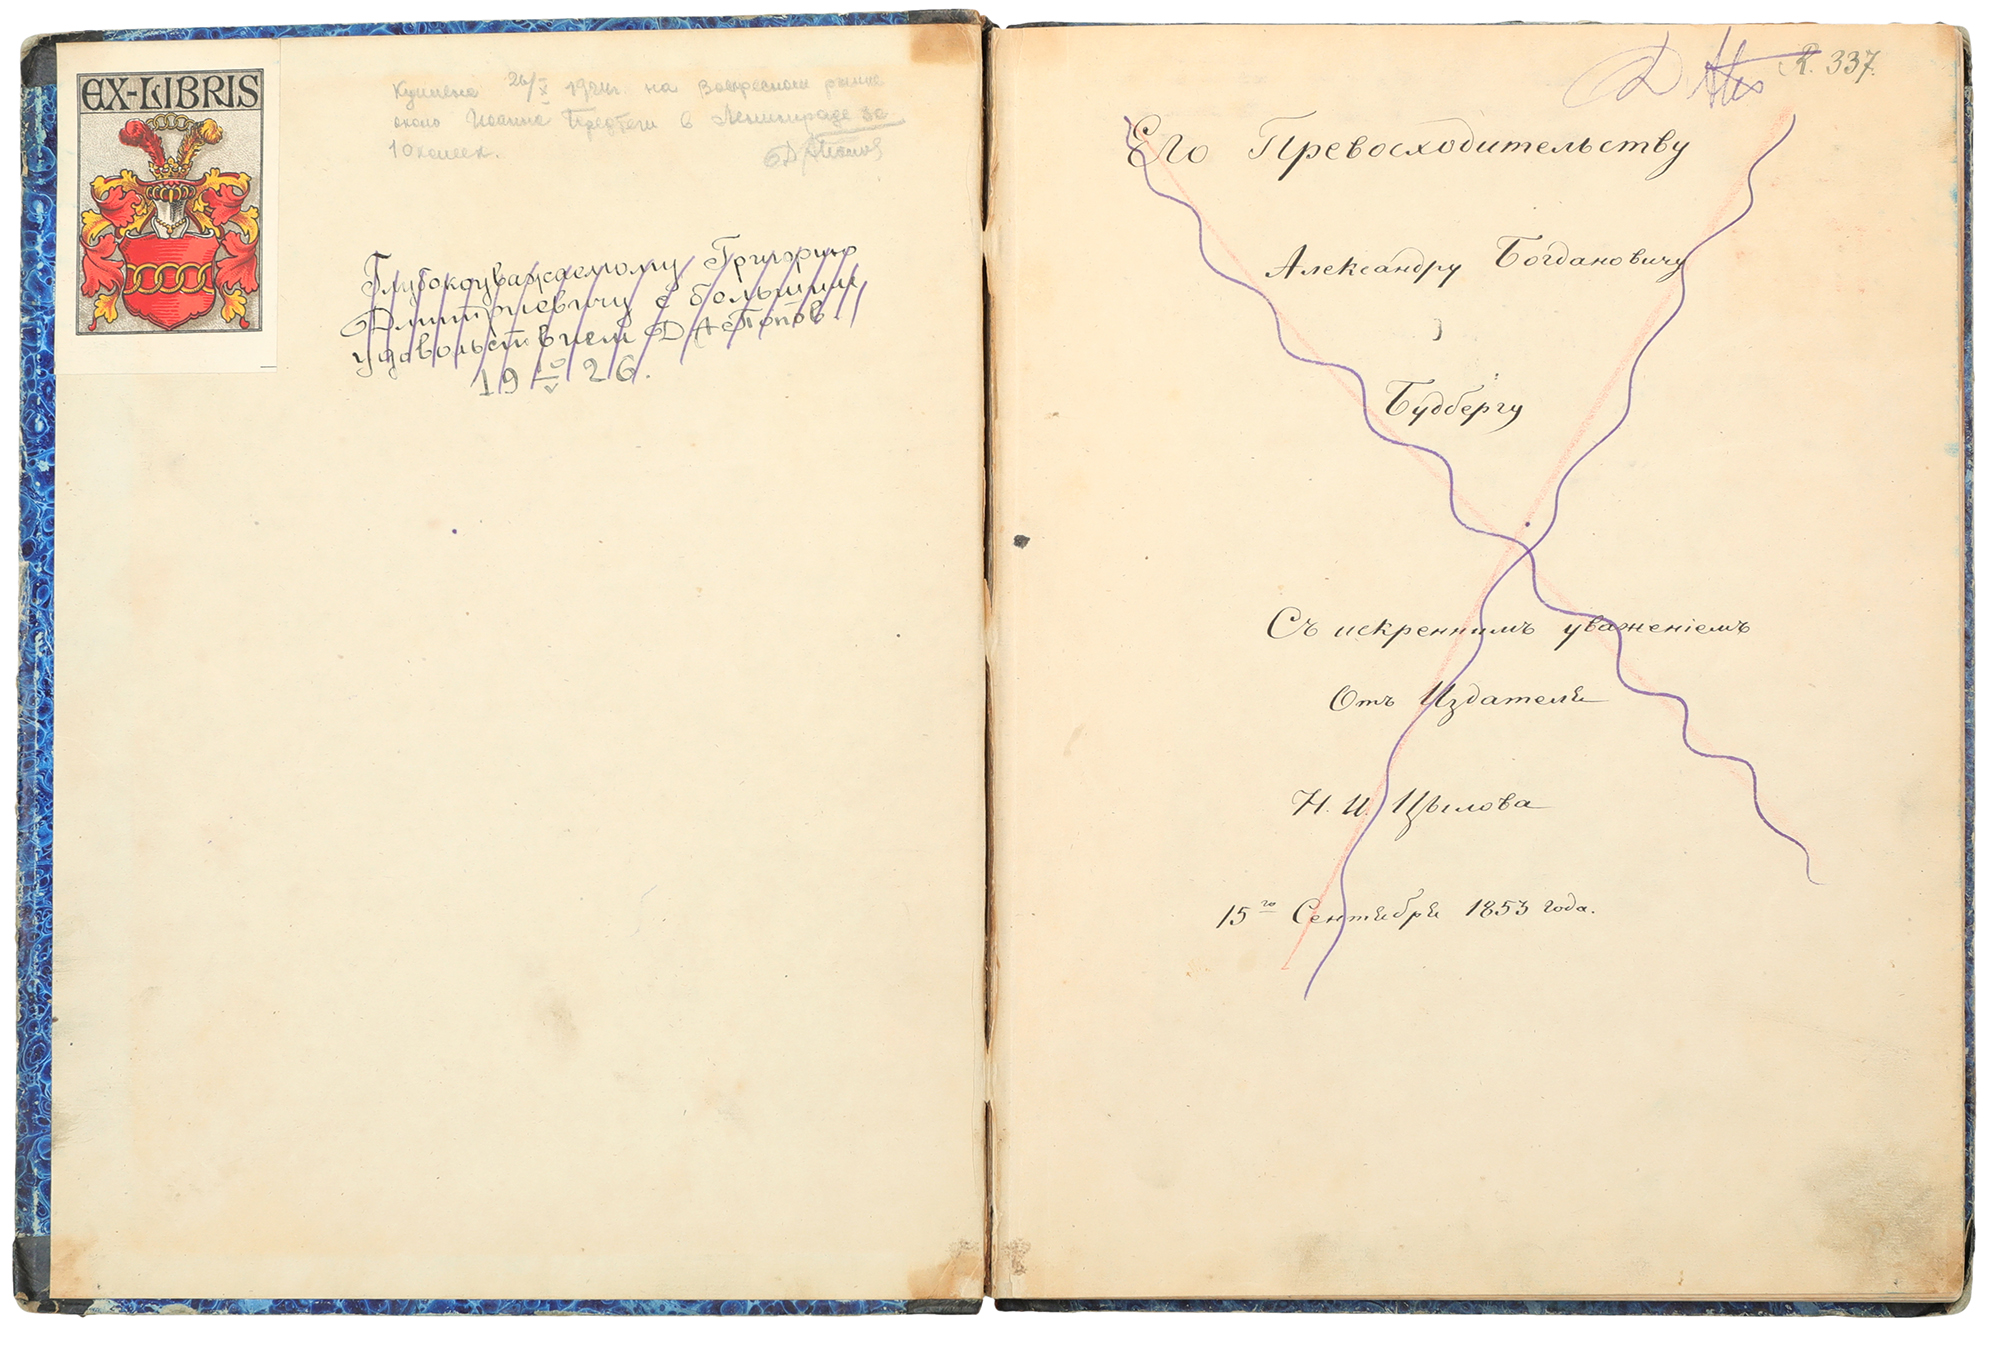 EX-LIBRIS
Куплена 26/X 1924г. на Воскресном рынке
около Иоанна Предтечи в Ленинграде за
10 копеек.
Глубокоуважаемому Григорию
Дмитриевичу с большим
удовольствием
19 10/V 26.
R. 337.
Его Превосходительству
Александру Богдановичу
Будбергу
Съ искреннимъ уваженіемъ
Отъ Издателя
Н. И. Цылова
15го Сентября 1853 года.